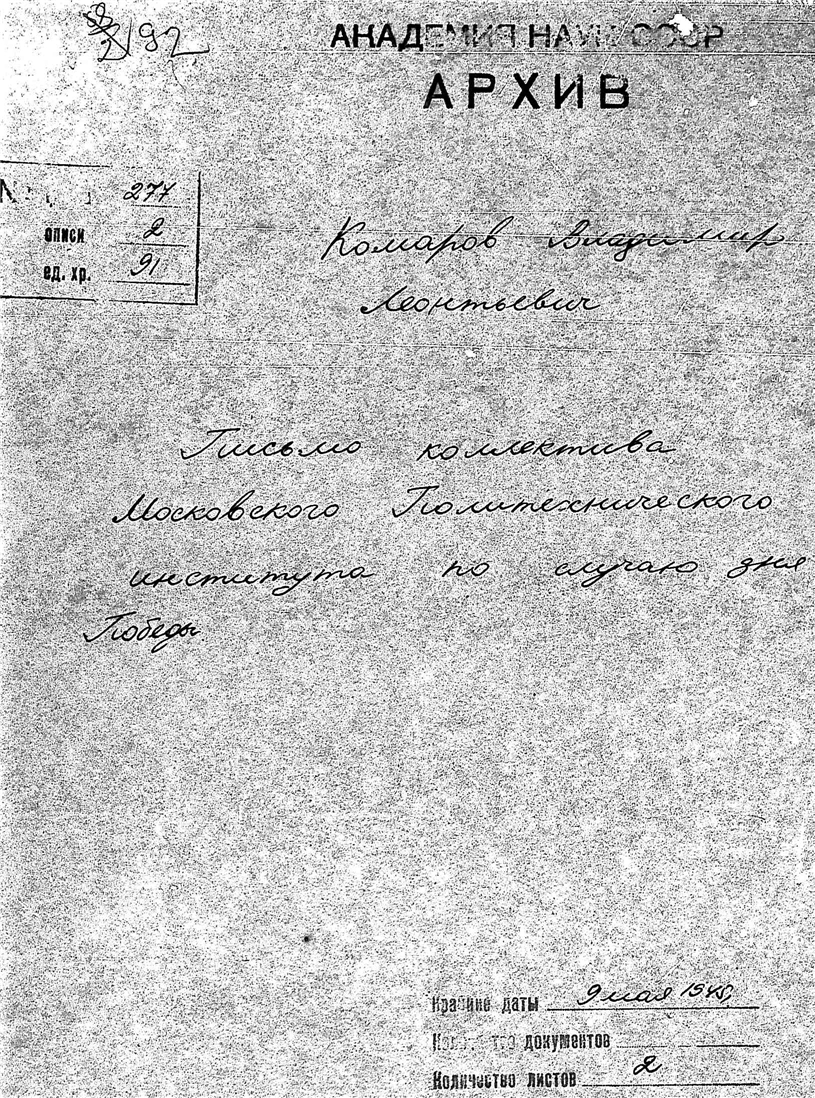 2/92
АКАДЕМИЯ НАУК СССР
АРХИВ
277
описи 2
ед. хр. 91
Комаров Владимир
Леонтьевич
Письмо коллектива
Московского Политехнического
института по случаю дня
Победы
Крайние даты 9 мая 1945
Количество документов
Количество листов 2